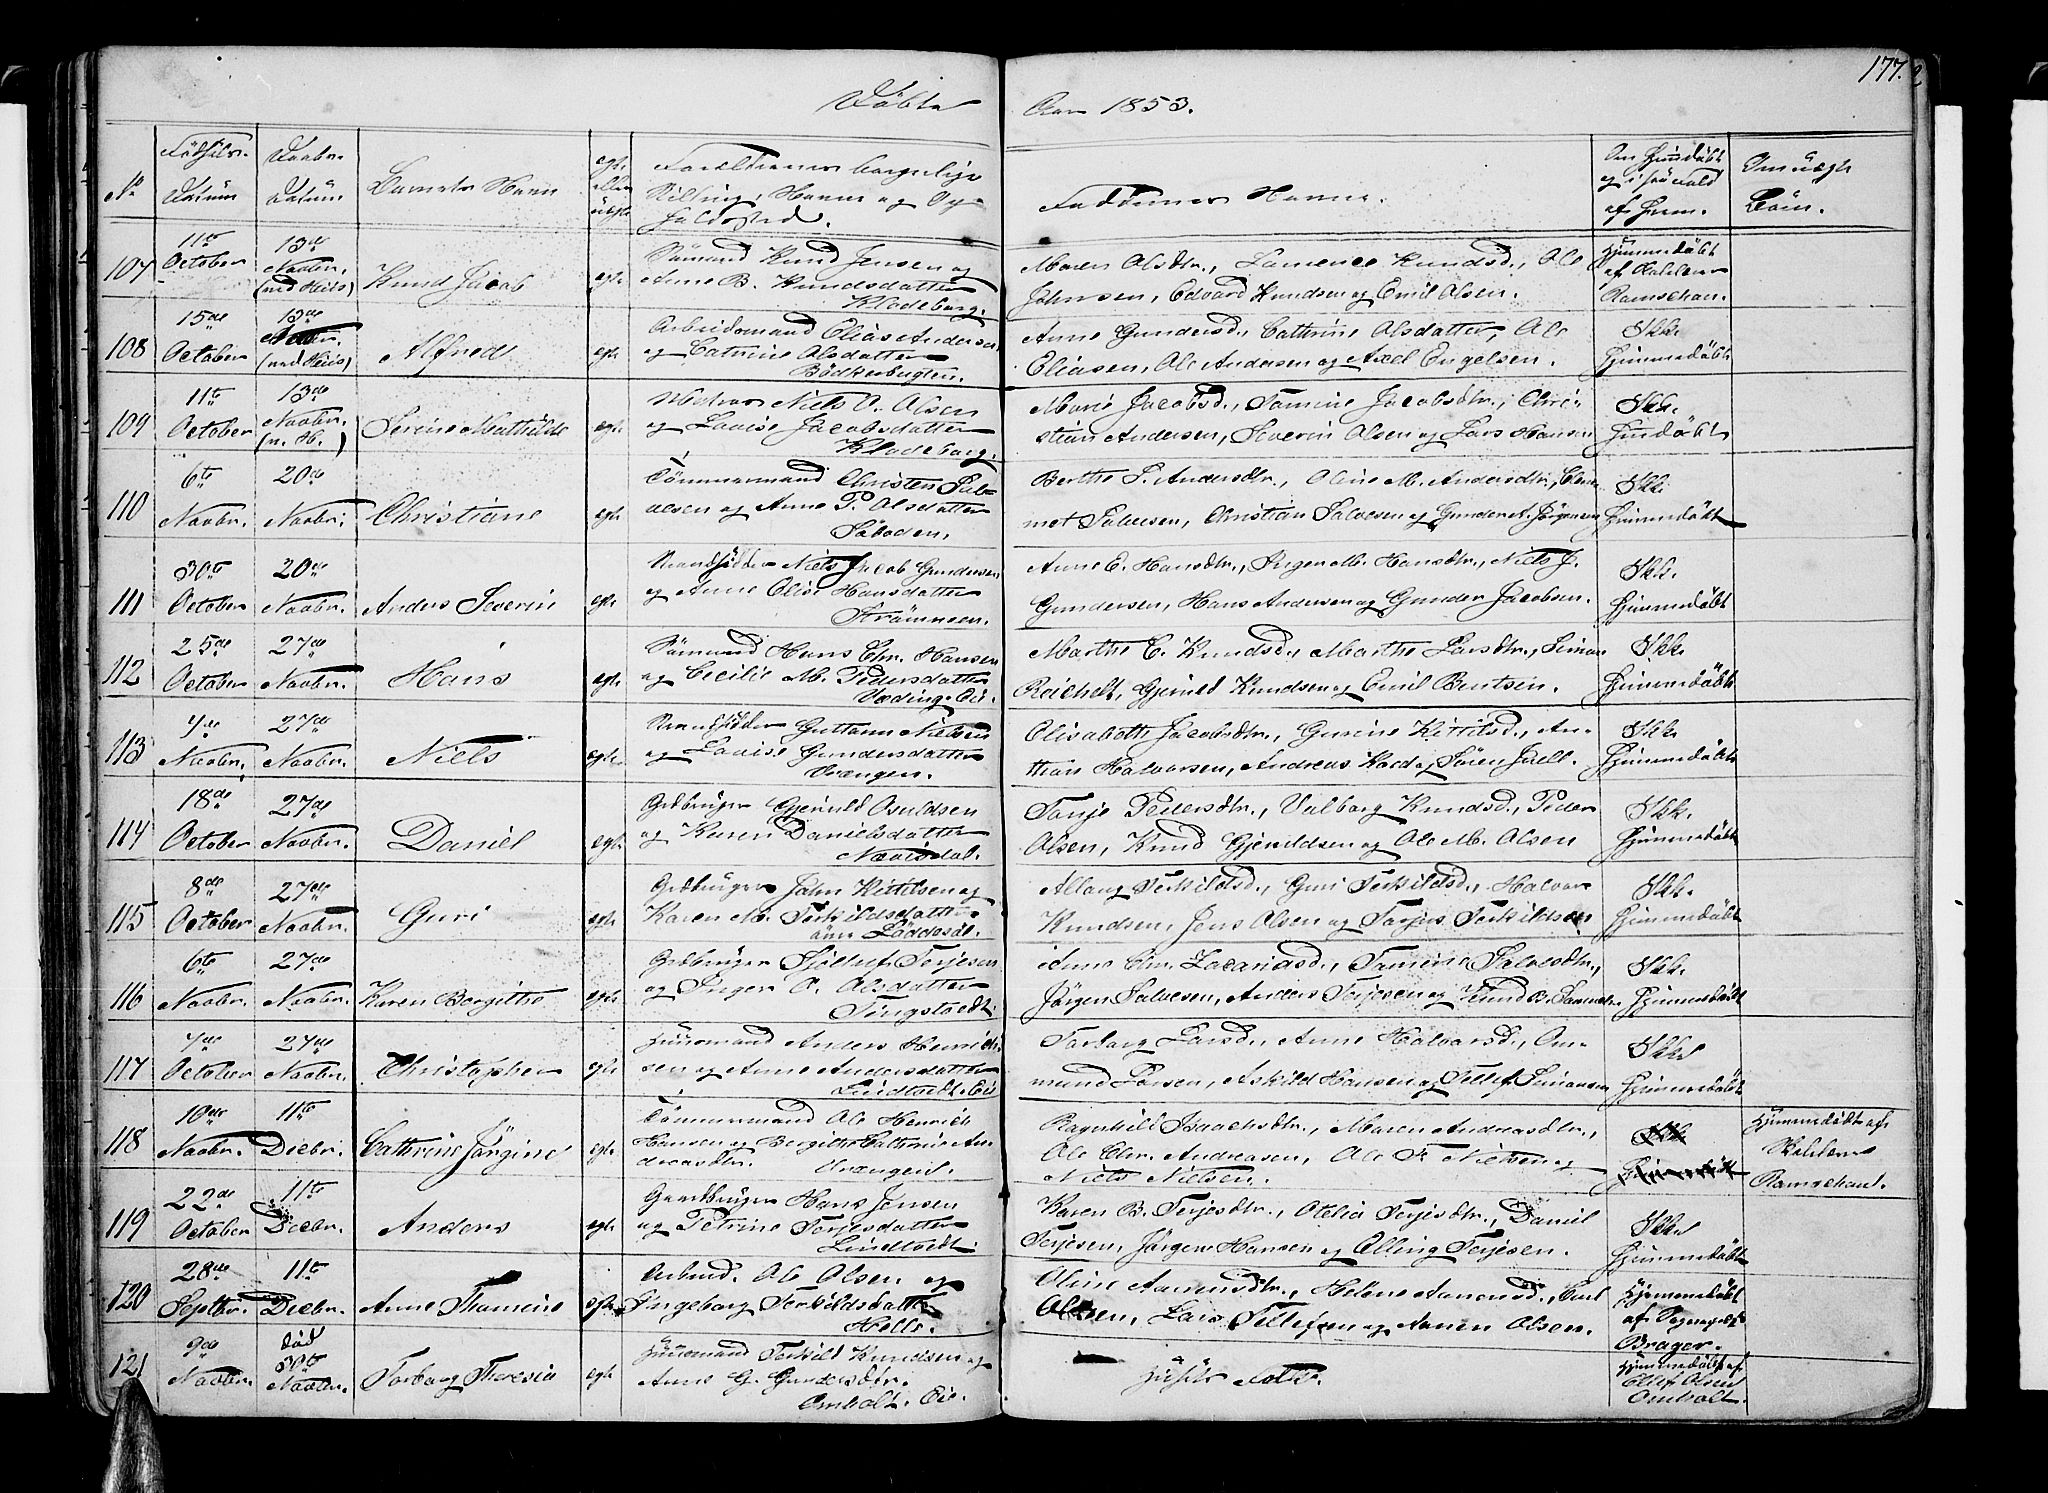 177.
Döbte
Aar 1853.
No
Födsels-
Datum
Daabs-
Datum
Barnets Navn
egte
eller
uægte
Forældrenes borgerlige
Stilling, Navne og Op-
holdssted.
Faddernes Navne.
Om hjemdöbt
og i saa Fald
af hvem.
107
11te
October
13de
Novbr.
Knud Jacob
egte
Sömand Knud Jensen og
Anne B. Knudsdatter
Kladeborg.
Maren Olsdtr., Laurence Knudsd., Ole
Johnsen, Edvard Knudsen og Emil Olsen.
Hjemmedöbt
af
108
15de
October
13de
Novbr.
Alfred
egte
Arbeidsmand Elias Andersen
og Catrine Olsdatter
Bödkerbugten.
Anne Gundersd., Cathrine Olsdatter, Ole
Eliasen, Ole Andersen og Axel Engelsen.
Ikke
hjemmedöbt
109
11te
October
13de
Novbr.
Serine Mathilde
egte
Niels O. Olsen
og Lovise Jacobsdatter
Kladeborg.
Marie Jacobsd., Tomine Jacobsdtr., Chri-
stian Andersen, Severin Olsen og Lars Hansen
Ikke
hjemdöbt
110
6te
Novbr.
20de
Novbr.
Christiane
egte
Tömmermand Christen Sal-
vesen og Anne P. Olsdatter
Söboden.
Berthe S. Andersdtr., Oline M. Andersdtr., Clem-
met Salvesen, Christian Salvesen og Gunder A. Jörgensen
Ikke
hjemmedöbt
111
30te
October
20de
Novbr.
Anders Severin
egte
Strandsidder Niels Jacob Gundersen
og Anne Olise Hansdatter
Strömmen.
Anne E. Hansdtr., Inger M. Hansdtr., Niels J.
Gundersen, Hans Andersen og Gunder Jacobsen.
Ikke
hjemmedöbt
112
25de
October
27de
Novbr.
Hans
egte
Sömand Hans Chr. Hansen
og Cecilie M. Pedersdatter
Marthe E. Knudsd., Marthe Larsdtr., Simon
Reichelt, Gjeruld Knudsen og Emil Bentsen.
Ikke
hjemmedöbt
113
4de
Novbr.
27de
Novbr.
Niels
egte
Strandsidder Guttorm Nielsen
og Lovise Gundersdatter
Vrængen.
Elisabeth Jacobsdtr., Gurine Kittilsd., An-
thon Halvorsen, Andreas Kold og Sören Juell.
Ikke
hjemmedöbt
114
18de
October
27de
Novbr.
Daniel
egte
Grdbruger Gjeruld Osuldsen
og Karen Danielsdatter
Nævisdal.
Tonje Pedersdtr., Valborg Knudsd., Peder
Olsen, Knud Gjeruldsen og Ole M. Olsen
Ikke
hjemmedöbt
115
8de
October
27de
Novbr.
Guri
egte
Grdbruger John Kittilsen og
Karen M. Terkildsdatter
Löddesöl.
Allaug Terkildsd., Guri Terkildsd., Halvor
Knudsen, Jens Olsen og Torjus Terkildsen
Ikke
hjemmedöbt
116
6te
Novbr.
27de
Novbr.
Karen Bergithe
egte
Grdbruger Fjölluf Terjesen
og Inger O. Olsdatter
Tingstvedt.
Anne Chr. Zacariasd., Tomine Salvesdtr.,
Jörgen Salvesen, Anders Terjesen og Knud B.
Ikke
hjemmedöbt
117
4de
October
27de
Novbr.
Christopher
egte
Huusmand Anders Henrik-
sen og Anne Andersdatter
Lindtvedt Eie
Torborg Larsd., Anne Halvorsd., Om-
mund Larsen, Askild Hansen og Tellef Simonsen
Ikke
hjemmedöbt
118
10de
Novbr.
11te
Decbr.
Cathrine Jörgine
egte
Tömmermand Ole Henrich
Hansen og Bergithe Cathrine An-
dreasdtr.
Vrængen.
Ragnhild Isaachsdtr., Maren Andreasdtr.,
Ole Chr. Andreasen, Ole F. Nielsen og
Niels Nielsen.
Hjemmedöbt af
119
22de
October
11te
Decbr.
Anders
egte
Gaardbruger Hans Jensen
og Petrine Terjesdatter
Lindtvedt.
Karen B. Terjesdtr., Otelia Terjesdtr., Daniel
Terjesen, Jörgen Hansen og Elling Terjesen.
Ikke
hjemmedöbt
120
28de
Septbr.
11te
Decbr.
Anne Thomine
egte
Arbmd. Ole Olsen og
Ingeborg Terkildsdatter
Helle.
Oline Aanensdtr., Helene Aanensd., Carl
Olsen, Lars Tellefsen og Aanen Olsen.
Hjemmedöbt
af
Brager.
121
9de
Novbr.
död
30te
Novbr.
Torborg Theresia
egte
Huusmand Terkild Knudsen og
Anne G. Gundersdtr.
Omholt. Eie
Husets Folk.
Hjemmedöbt af
Ellef Olsen
Omholt.